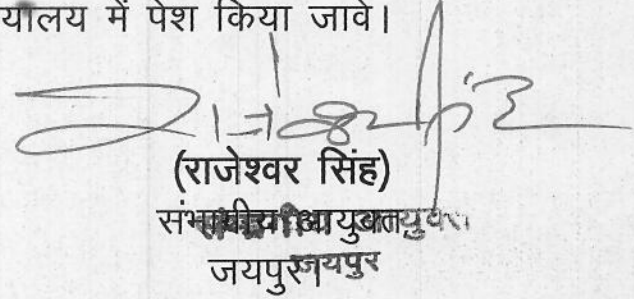 यालय में पेश किया जावे।
(राजेश्वर सिंह)
संभागीय आयुक्त
जयपुर।
जयपुर